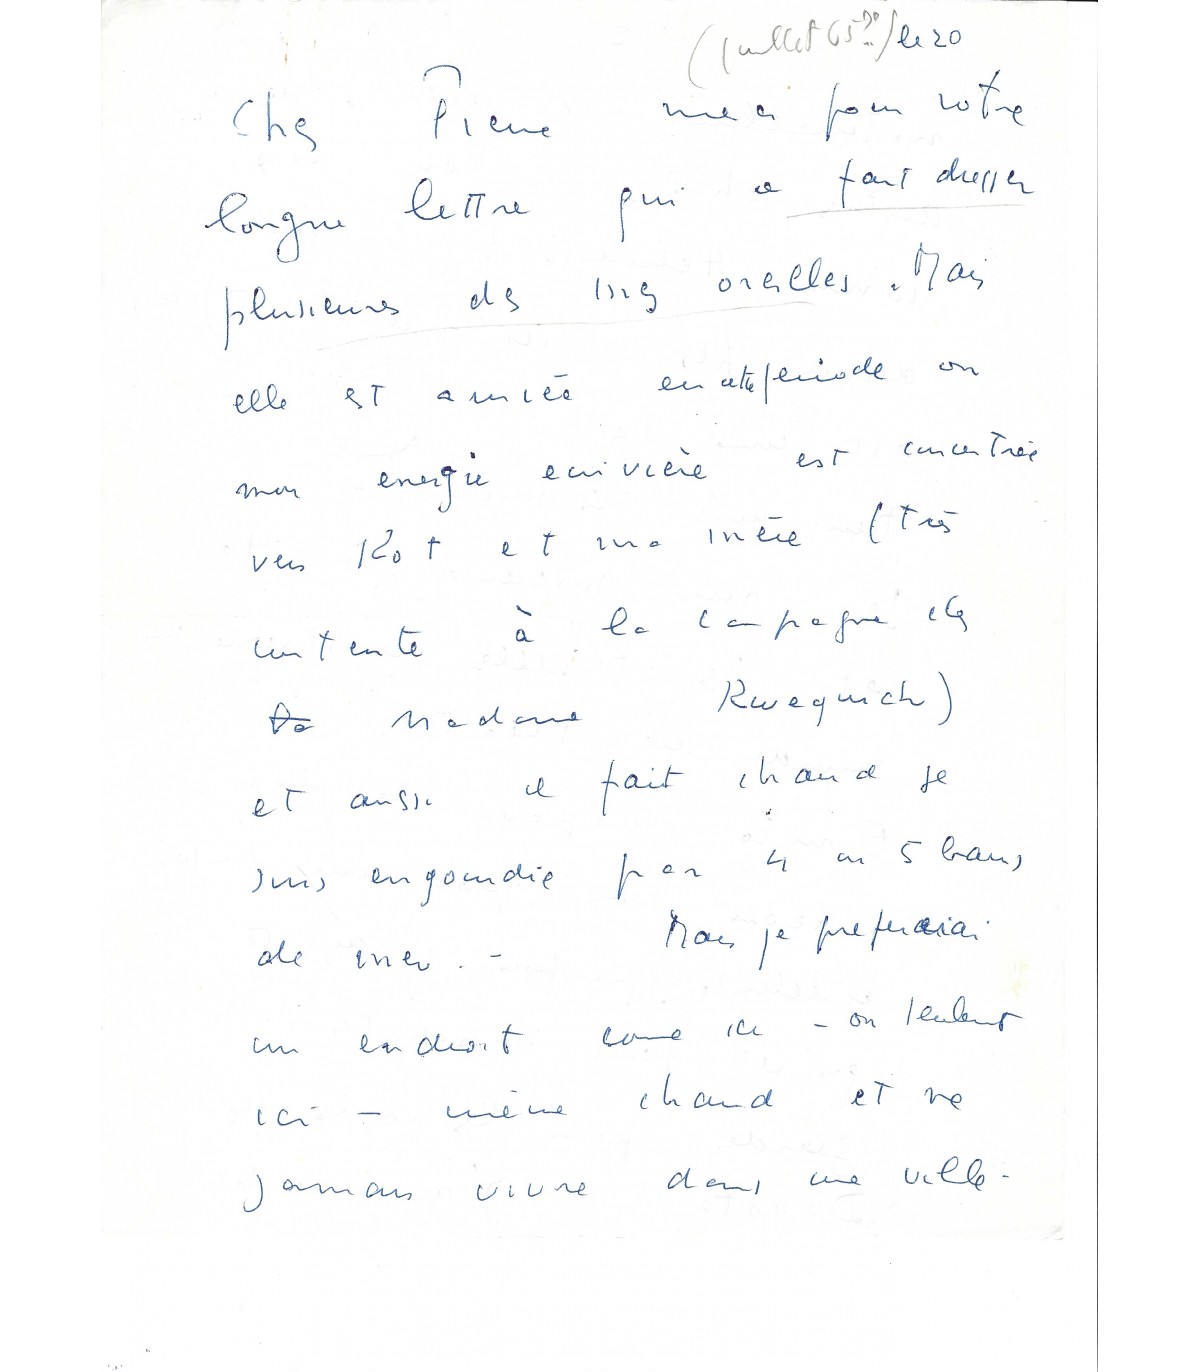 (juillet 65 ?) le 20
Cher Pierre merci pour votre
longue lettre qui a fait dresser
plusieurs de mes oreilles. Mais
elle est arrivée en cette période où
mon energie ecrivière est concentrée
vers Kot et ma mère (très
contente à la campagne chez
Madame)
et aussi il fait chaud je
suis engourdie par 4 ou 5 bains
de mer. - Mais je prefererai
un endroit come ici - ou seulement
ici - même chaud et ne
jamais vivre dans une ville -